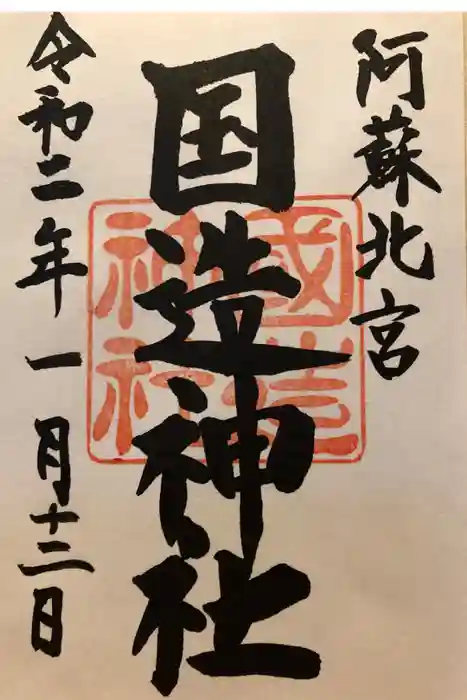 阿蘇北宮
国造神社
國造
神社
令和二年一月十二日